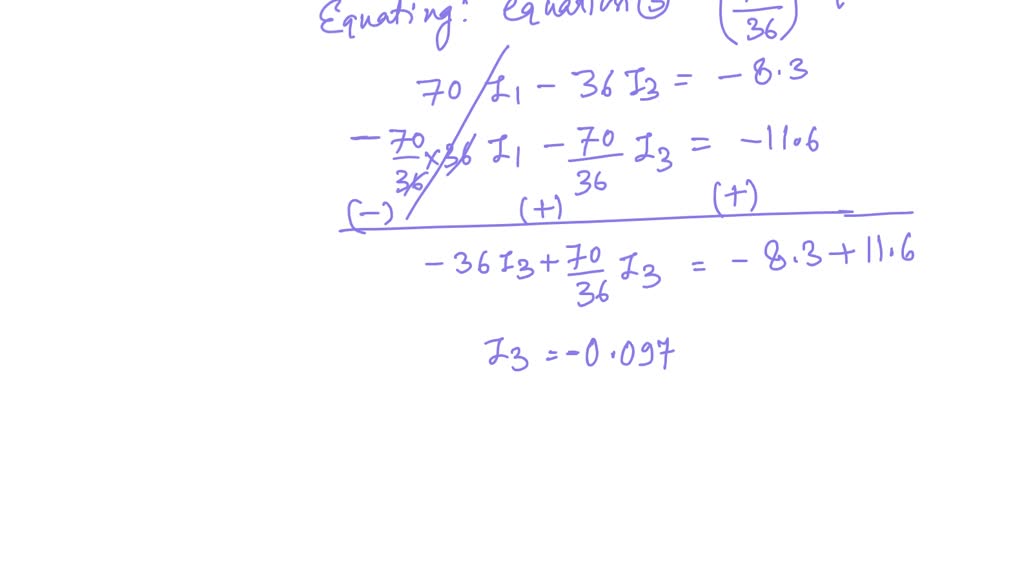 Equating: equation ③ (/36)
70 I₁ - 36 I₃ = - 8.3
- 70/36 × 36 I₁ - 70/36 I₃ = -11.6
(-) (+) (+)
- 36 I₃ + 70/36 I₃ = - 8.3 + 11.6
I₃ = -0.097